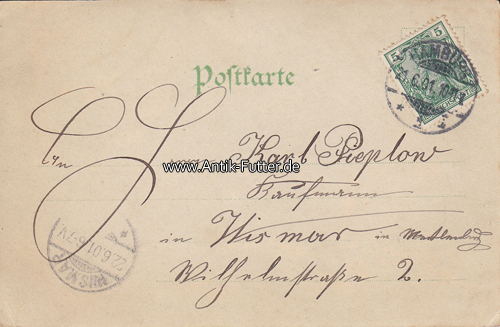 5 5
HAMBURG
.6.01.
Postkarte
An
Herrn Karl Pieplow
www.Antik-Futter.de
Kaufmann
in Wismar in Mecklenburg
Wilhelmstraße 2.
WISMAR
22.6.01.6-7V